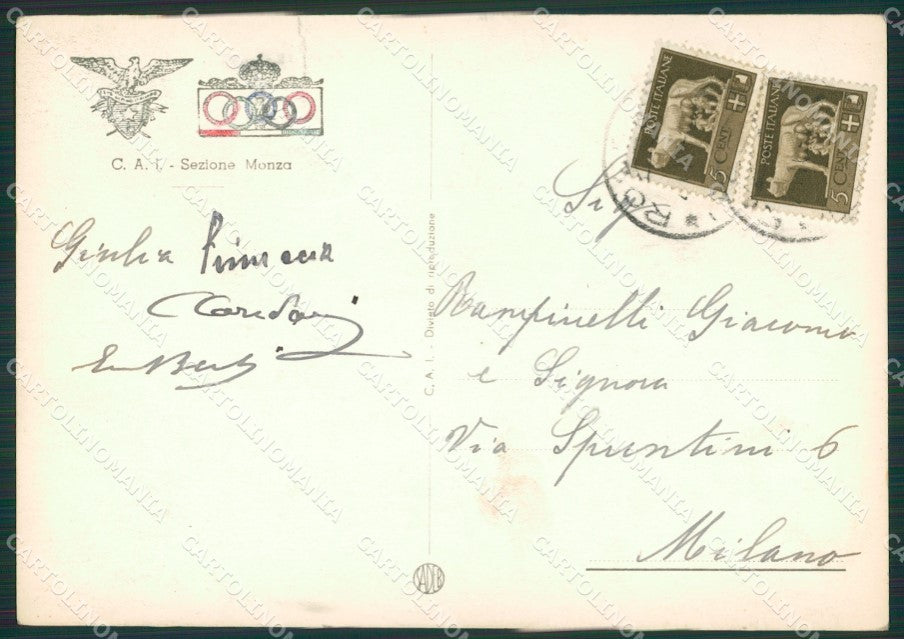 C. A. I. - Sezione Monza
Giulia
POSTE ITALIANE
5 CENT
POSTE ITALIANE
5 CENT
Sig
Rampinelli Giacomo
e Signora
Via Spuntini 6
Milano
C. A. I. - Divieto di riproduzione
CARTOLINOMANIA